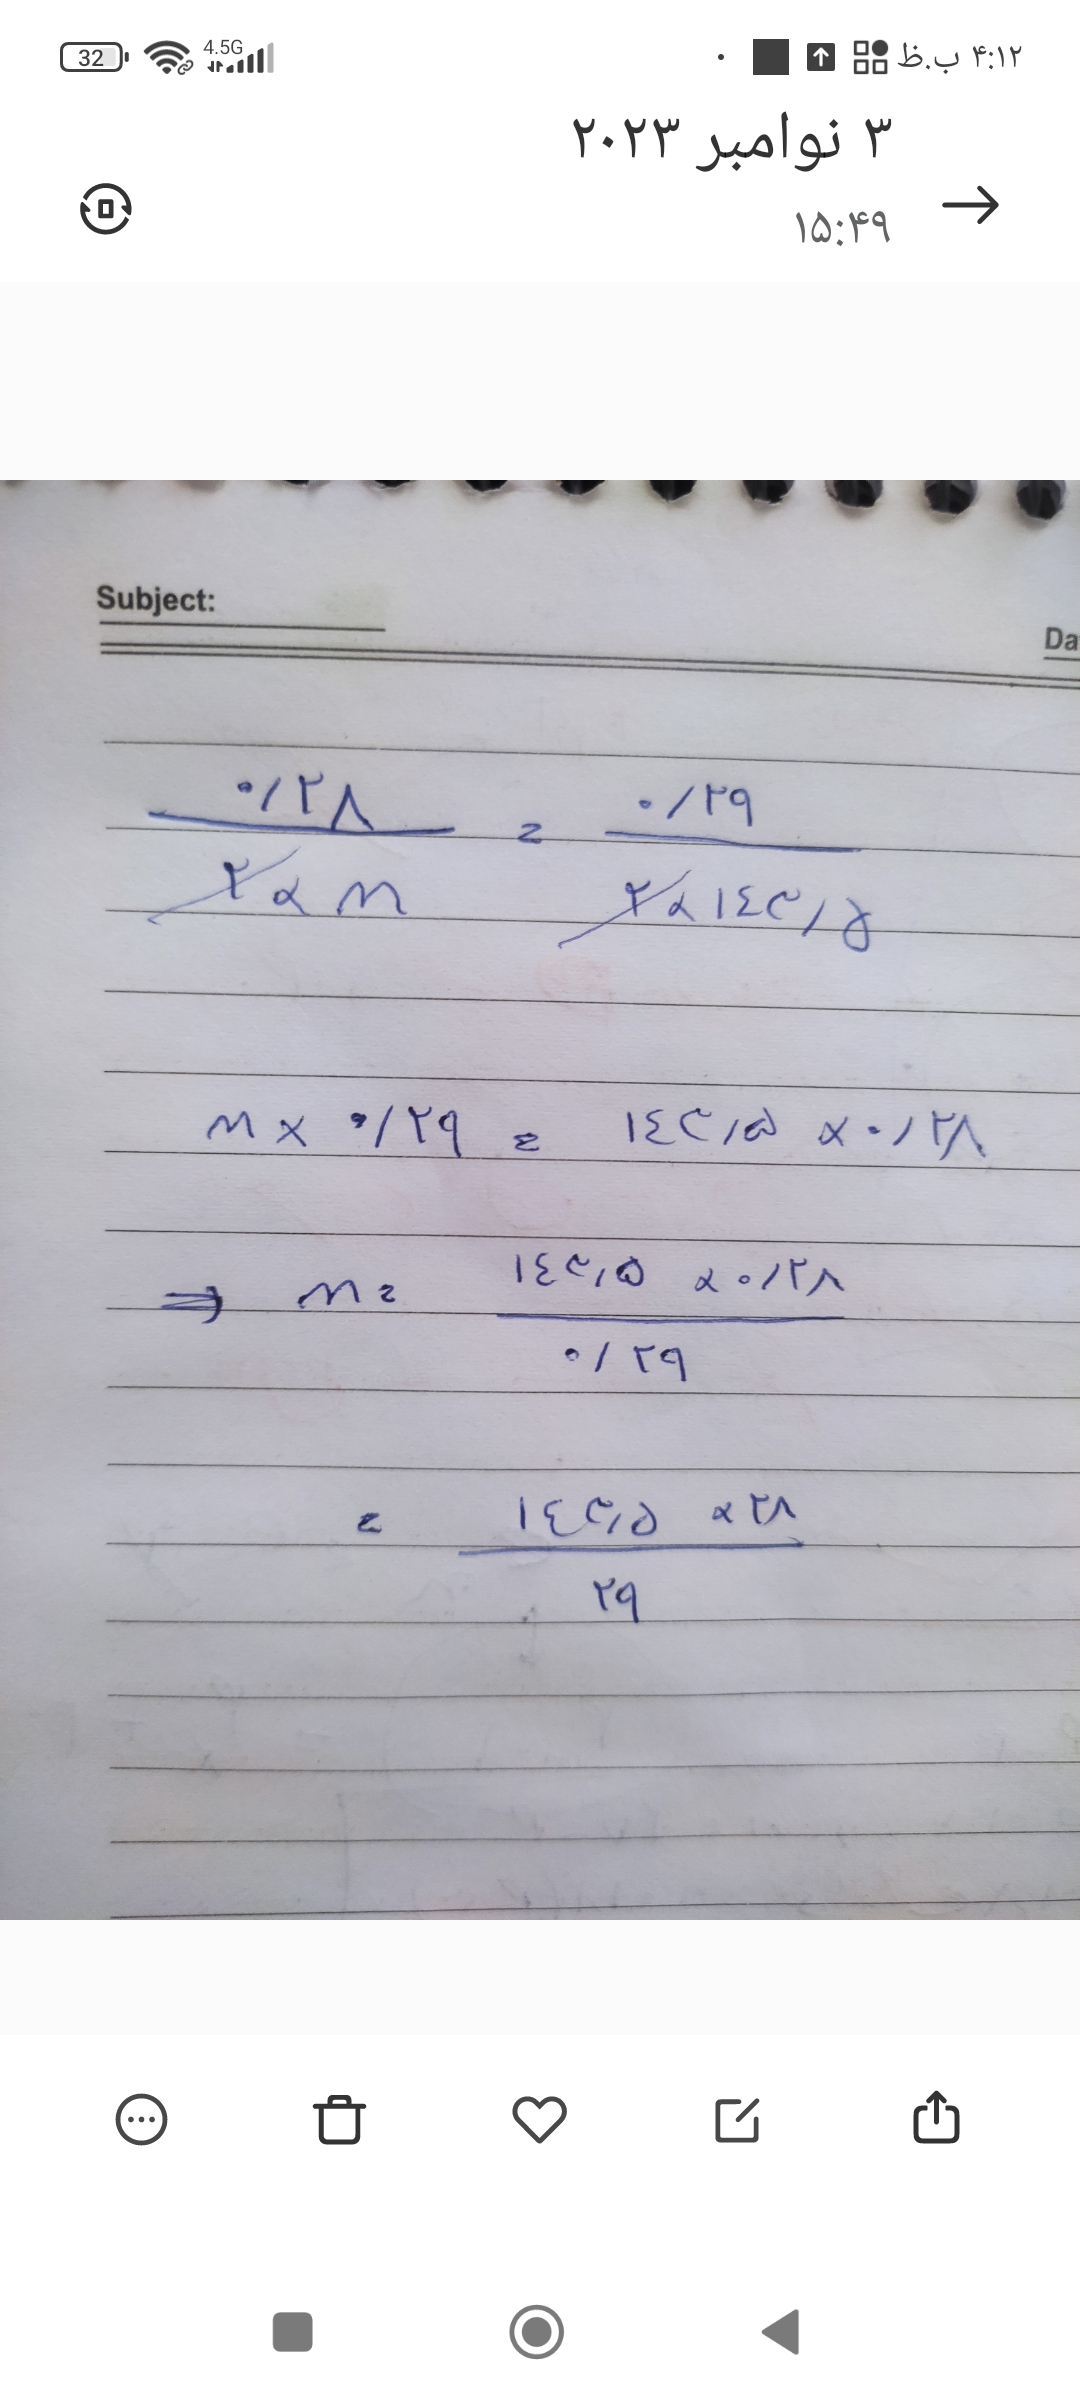 32 4.5G ۴:۱۲ ب.ظ
۳ نوامبر ۲۰۲۳
۱۵:۴۹
Subject:
Da
۰/۲۸ = ۰/۲۹
۲ × m ۲ × ۱٤۳/۵
m × ۰/۲۹ = ۱٤۳/۵ × ۰/۲۸
⇒ m = ۱٤۳/۵ × ۰/۲۸
۰/۲۹
= ۱٤۳/۵ × ۲۸
۲۹